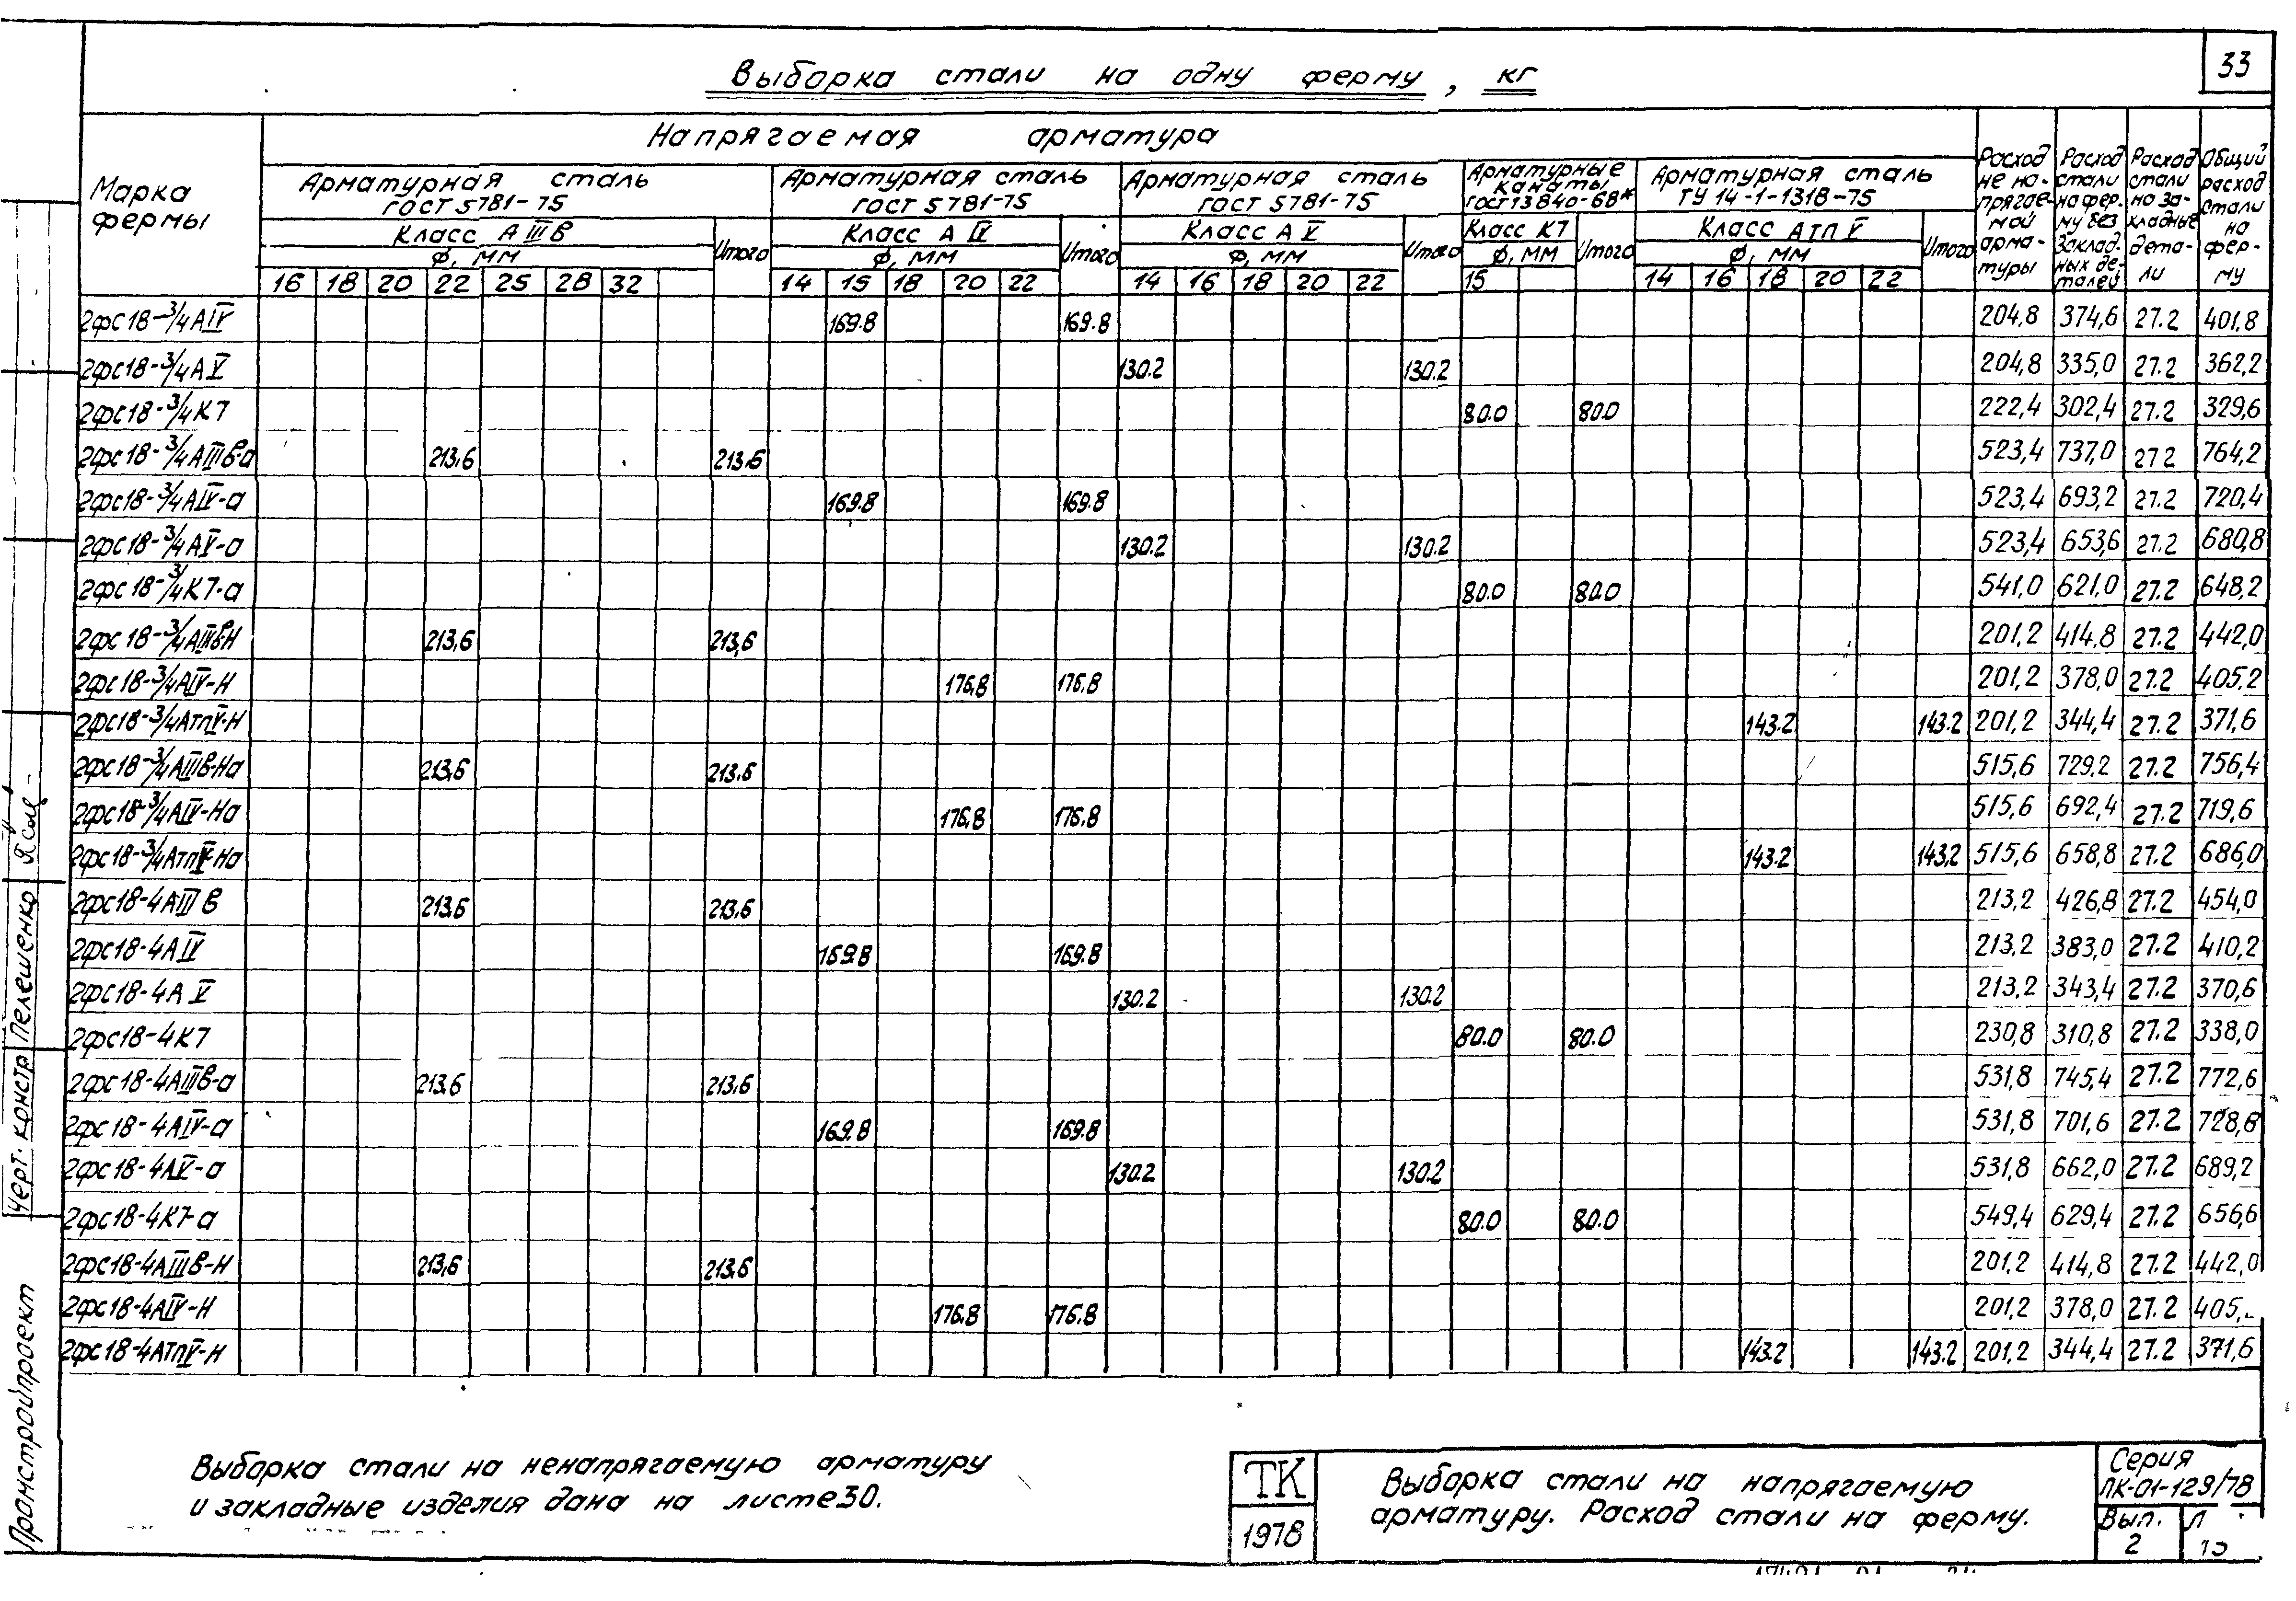 33
Выборка стали на одну ферму, кг
Марка фермы
Напрягаемая арматура
Арматурная сталь ГОСТ 5781-75
Класс А III в
φ, мм
16 18 20 22 25 28 32
Итого
Арматурная сталь ГОСТ 5781-75
Класс А IV
φ, мм
14 15 18 20 22
Итого
Арматурная сталь ГОСТ 5781-75
Класс А V
φ, мм
14 16 18 20 22
Итого
Арматурные канаты ГОСТ 13840-68*
Класс К7
φ, мм
15
Итого
Арматурная сталь ТУ 14-1-1318-75
Класс Атп V
φ, мм
14 16 18 20 22
Итого
Расход не напрягаемой арматуры
Расход стали на ферму без закладных деталей
Расход стали на закладные детали
Общий расход стали на ферму
2фс18-3/4АIV 169.8 169.8 204,8 374,6 27.2 401,8
2фс18-3/4АV 130.2 130.2 204,8 335,0 27.2 362,2
2фс18-3/4К7 80.0 80.0 222,4 302,4 27.2 329,6
2фс18-3/4АIIIв-а 213,6 213,6 523,4 737,0 27 2 764,2
2фс18-3/4АIV-а 169.8 169.8 523,4 693,2 27.2 720,4
2фс18-3/4АV-а 130.2 130.2 523,4 653,6 27.2 680,8
2фс18-3/4К7-а 80.0 80.0 541,0 621,0 27.2 648,2
2фс18-3/4АIIIвН 213,6 213,6 201,2 414,8 27.2 442,0
2фс18-3/4АIV-Н 176,8 176,8 201,2 378,0 27.2 405,2
2фс18-3/4АтпV-Н 143.2 143.2 201,2 344,4 27.2 371,6
2фс18-3/4АIIIв-На 213,6 213,6 515,6 729,2 27.2 756,4
2фс18-3/4АIV-На 176,8 176,8 515,6 692,4 27.2 719,6
2фс18-3/4АтпV-На 143.2 143,2 515,6 658,8 27.2 686,0
2фс18-4АIIIв 213,6 213,6 213,2 426,8 27.2 454,0
2фс18-4АIV 169.8 169.8 213,2 383,0 27.2 410,2
2фс18-4АV 130.2 130.2 213,2 343,4 27.2 370,6
2фс18-4К7 80.0 80.0 230,8 310,8 27.2 338,0
2фс18-4АIIIв-а 213,6 213,6 531,8 745,4 27.2 772,6
2фс18-4АIV-а 169.8 169.8 531,8 701,6 27.2 728,8
2фс18-4АV-а 130.2 130.2 531,8 662,0 27.2 689,2
2фс18-4К7-а 80.0 80.0 549,4 629,4 27.2 656,6
2фс18-4АIIIв-Н 213,6 213,6 201,2 414,8 27.2 442,0
2фс18-4АIV-Н 176.8 176.8 201,2 378,0 27.2 405,
2фс18-4АтпV-Н 143.2 143.2 201,2 344,4 27.2 371,6
Выборка стали на ненапрягаемую арматуру
и закладные изделия дана на листе 30.
ТК
1978
Выборка стали на напрягаемую
арматуру. Расход стали на ферму.
Серия
ПК-01-129/78
Вып. 2
Л
Черт. констр Пелешенко
Промстройпроект